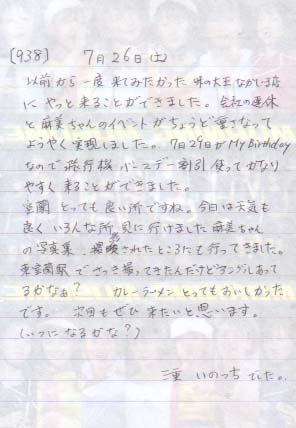 [938] 7月26日(土)
以前から一度来てみたかった 味の大王 なかじま店
に やっと来ることができました。会社の連休
と麻美ちゃんのイベントがちょうど重さなって
ようやく実現しました。7月29日が My Birthday
なので 飛行機 バースデー割引 使って かなり
やすく 来ることができました。
室蘭 とっても良い所ですね。今日は天気も
良く いろんな所 見に行けました 麻美ちゃん
の写真集 撮影されたところにも行ってきました。
東室蘭駅で さっき撮ってきたんだけど アングルあって
るかなぁ? カレーラーメン とってもおいしかった
です。 次回もぜひ来たいと思います。
(いつになるかな?)
三重 いのっち でした。